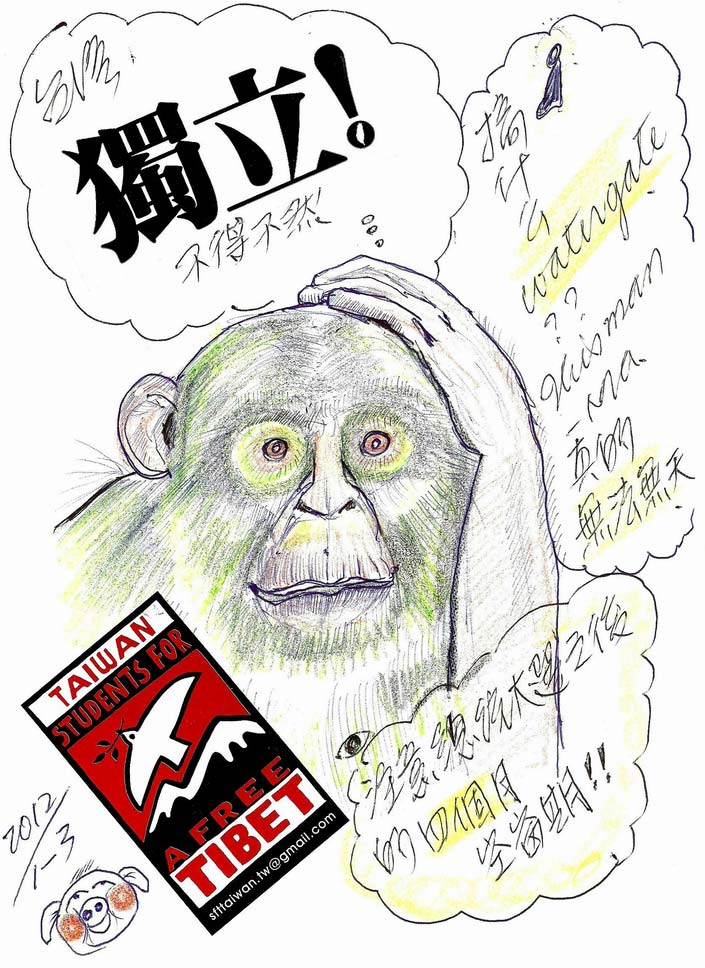 台灣
獨立!
不得不然!
搞什么
watergate
??
真的
無法無天
注意總統大選之後
的四個月
空窗期!!
TAIWAN
STUDENTS FOR
A FREE
TIBET
sfttaiwan.tw@gmail.com
2012/
1-3